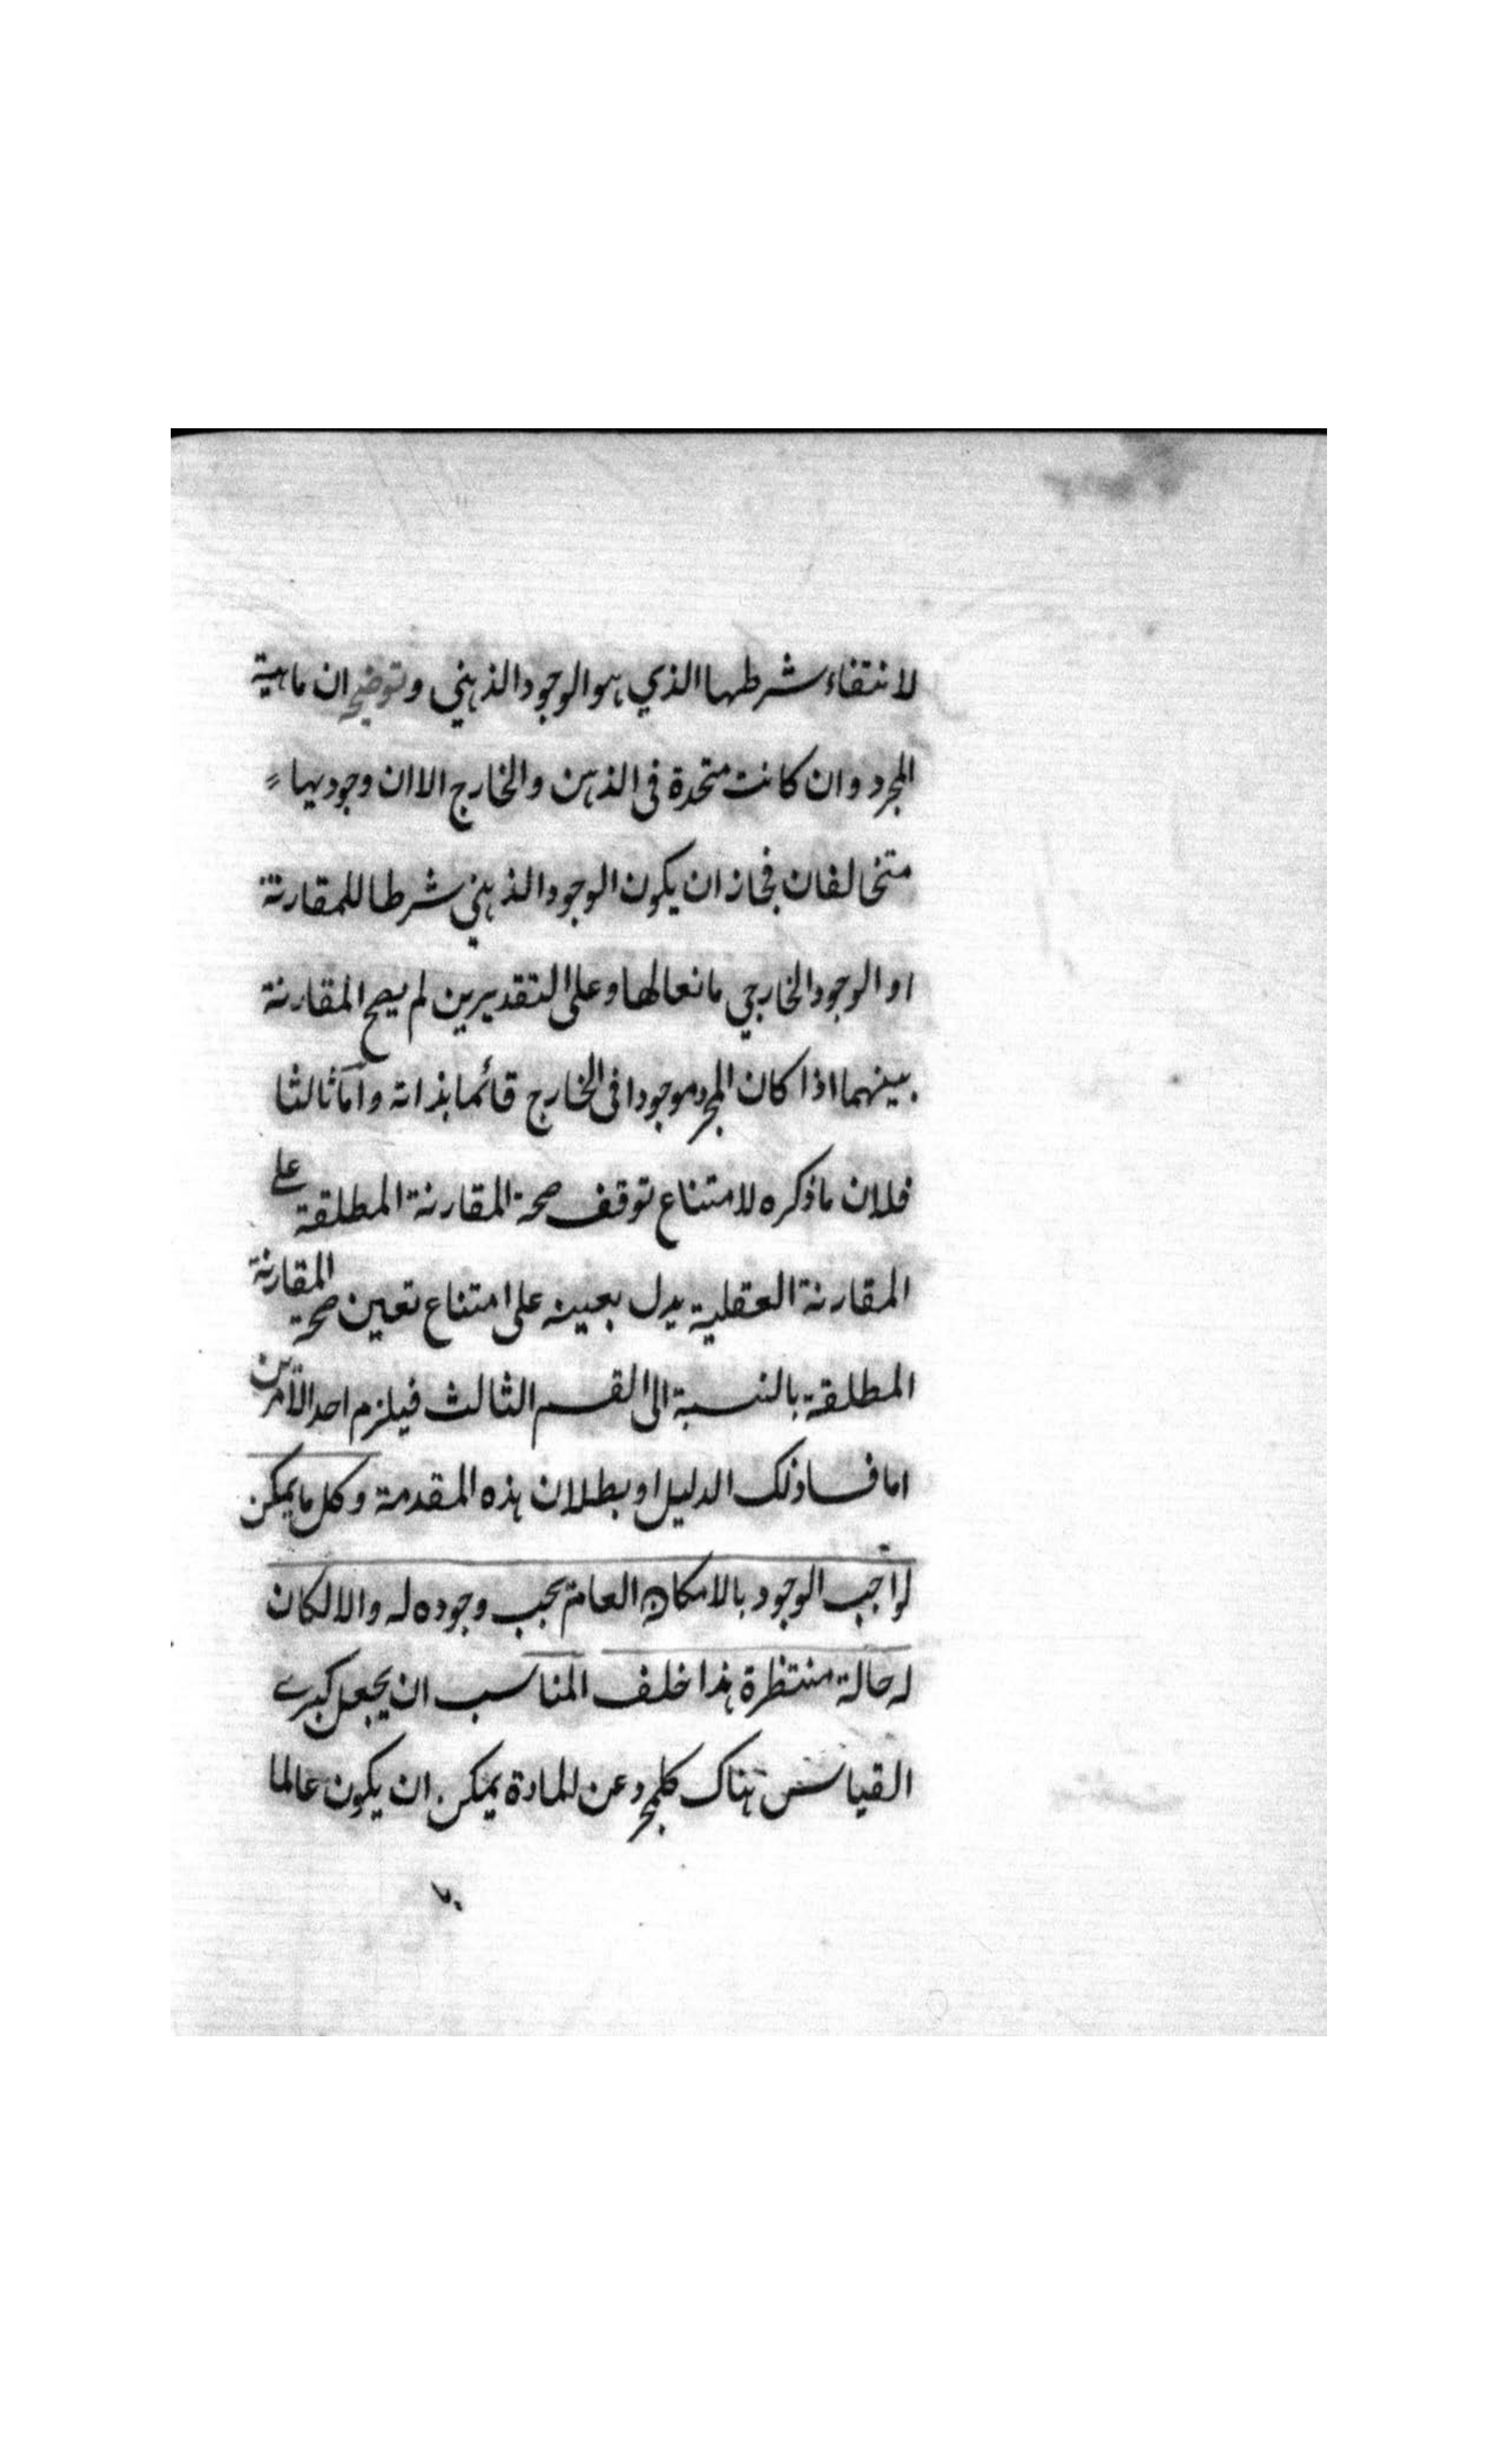 لانتفاء شرطها الذي هو الوجود الذهني وتوضيحه ان ماهية
المجرد وان كانت متحدة في الذهن والخارج الا ان وجوديها
متخالفان فجاز ان يكون الوجود الذهني شرطا للمقارنة
او الوجود الخارجي مانعا لها وعلى التقديرين لم يصح المقارنة
بينهما اذا كان المجرد موجودا في الخارج قائما بذاته واما ثالثا
فلان ما ذكره لامتناع توقف صحة المقارنة المطلقة على
المقارنة العقلية يدل بعينه على امتناع تعين صحة المقارنة
المطلقة بالنسبة الى القسم الثالث فيلزم احد الامرين
اما فساد ذلك الدليل او بطلان هذه المقدمة وكل ما يمكن
لواجب الوجود بالامكان العام يجب وجوده له والا لكان
له حالة منتظرة هذا خلف المناسب ان يجعل كبرى
القياس هناك كل مجرد عن المادة يمكن ان يكون عالما